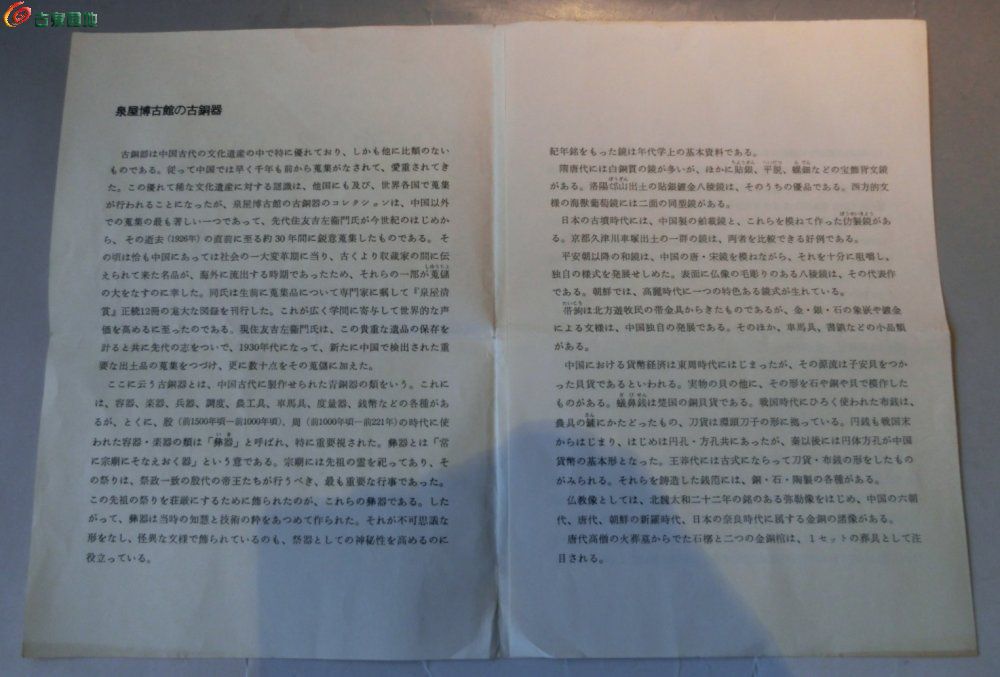 古泉園地
泉屋博古館の古銅器
古銅器は中国古代の文化遺産の中で特に優れており、しかも他に比類のない
ものである。従って中国では早く千年も前から蒐集がなされて、愛重されてき
た。この優れて稀な文化遺産に対する認識は、他国にも及び、世界各国で蒐集
が行われることになったが、泉屋博古館の古銅器のコレクションは、中国以外
での蒐集の最も著しい一つであって、先代住友吉左衞門氏が今世紀のはじめか
ら、その逝去(1926年)の直前に至る約30年間に鋭意蒐集したものである。そ
の頃は恰も中国にあっては社会の一大変革期に当り、古くより収蔵家の間に伝
えられて来た名品が、海外に流出する時期であったため、それらの一部が蒐儲
の大をなすのに幸した。同氏は生前に蒐集品について専門家に嘱して『泉屋清
賞』正続12冊の尨大な図録を刊行した。これが広く学間に寄与して世界的な声
価を高めるに至ったのである。現住友吉左衞門氏は、この貴重な遺品の保存を
計ると共に先代の志をついで、1930年代になって、新たに中国で検出された重
要な出土品の蒐集をつづけ、更に数十点をその蒐儲に加えた。
ここに云う古銅器とは、中国古代に製作せられた青銅器の類をいう。これに
は、容器、楽器、兵器、調度、農工具、車馬具、度量器、銭幣などの各種があ
るが、とくに、殷(前1500年頃―前1000年頃)、周(前1000年頃―前221年)の時代に使
われた容器・楽器の類は「彝器」と呼ばれ、特に重要視された。彝器とは「常
に宗廟にそなえおく器」という意である。宗廟には先祖の霊を祀ってあり、そ
の祭りは、祭政一致の殷代の帝王たちが行うべき、最も重要な行事であった。
この先祖の祭りを荘厳にするために飾られたのが、これらの彝器である。した
がって、彝器は当時の知慧と技術の粋をあつめて作られた。それが不可思議な
形をなし、怪異な文様で飾られているのも、祭器としての神秘性を高めるのに
役立っている。
紀年銘をもった鏡は年代学上の基本資料である。
隋唐代には白銅質の鏡が多いが、ほかに貼銀、平脱、螺鈿などの宝飾背文鏡
がある。洛陽邙山出土の貼銀鍍金八稜鏡は、そのうちの優品である。四方的文
様の海獣葡萄鏡には二面の同型鏡がある。
日本の古墳時代には、中国製の舶載鏡と、これらを模ねて作った仿製鏡があ
る。京都久津川車塚出土の一群の鏡は、両者を比較できる好例である。
平安朝以降の和鏡は、中国の唐・宋鏡を模ねながら、それを十分に咀嚼し、
独自の様式を発展せしめた。表面に仏像の毛彫りのある八稜鏡は、その代表作
である。朝鮮では、高麗時代に一つの特色ある鏡式が生れている。
帯鉤は北方遊牧民の帯金具からきたものであるが、金・銀・石の象嵌や鍍金
による文様は、中国独自の発展である。そのほか、車馬具、書鎮などの小品類
がある。
中国における貨幣経済は東周時代にはじまったが、その源流は子安貝をつか
った貝貨であるといわれる。実物の貝の他に、その形を石や銅や貝で模作した
ものがある。蟻鼻銭は楚国の銅貝貨である。戦国時代にひろく使われた布銭は、
農具の鏟にかたどったもの、刀貨は環頭刀子の形に拠っている。円銭も戦国末
からはじまり、はじめは円孔・方孔共にあったが、秦以後には円体方孔が中国
貨幣の基本形となった。王莽代には古式にならって刀貨・布銭の形をしたもの
がみられる。それらを鋳造した銭笵には、銅・石・陶製の各種がある。
仏教像としては、北魏太和二十二年の銘のある弥勒像をはじめ、中国の六朝
代、唐代、朝鮮の新羅時代、日本の奈良時代に属する金銅の諸像がある。
唐代高僧の火葬墓からでた石槨と二つの金銅棺は、1セットの葬具として注
目される。